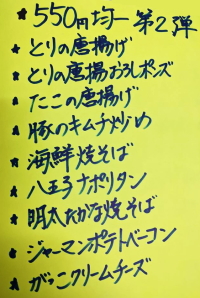 ★550円均一 第2弾
★とりの唐揚げ
★とりの唐揚おろしポンズ
★たこの唐揚げ
★豚のキムチ炒め
★海鮮焼そば
★八王子ナポリタン
★明太たかな焼そば
★ジャーマンポテトベーコン
★がっこクリームチーズ